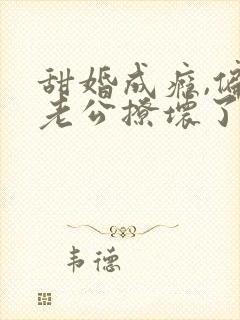 甜婚成瘾,偏
老公撩坏了
韦德